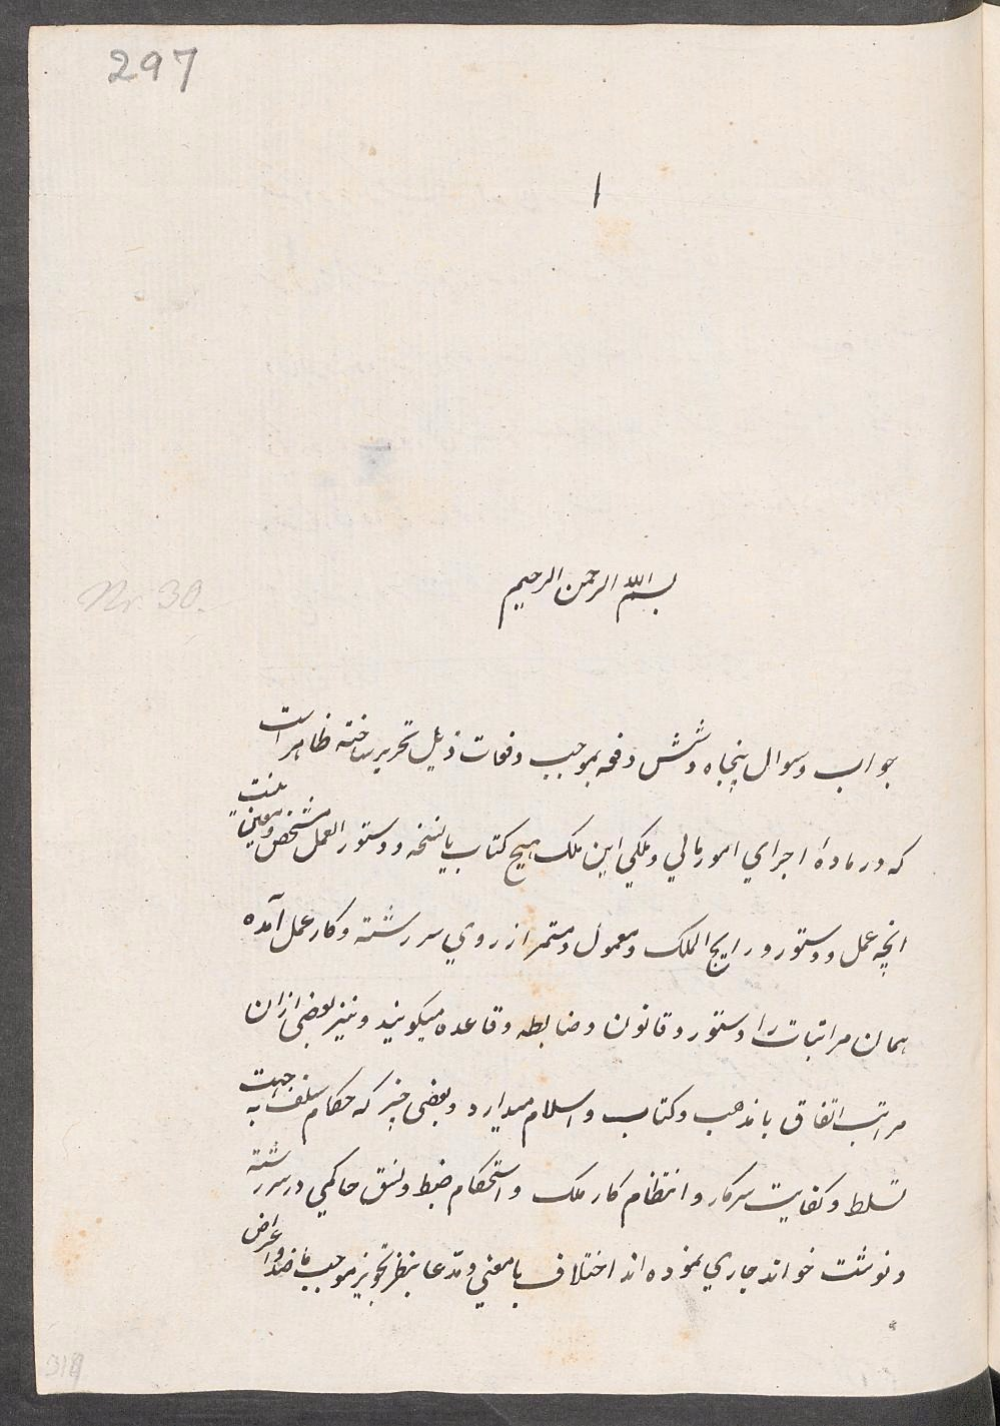 297
ا
Nr. 30.
بسم الله الرحمن الرحيم
جواب وسوال پنجاه وشش دفعه بموجب دفعات ذيل تحرير ساخته ظاهر است
كه در ماده اجراي امور مالي وملكي اين ملك هيچ كتاب يا نسخه ودستور العمل مشخص ومعين نيست
انچه عمل ودستور و رايج الملك ومعمول ومستمر از روي سر رشته وكار عمل آمده
همان مراتبات را دستور وقانون وضابطه وقاعده ميگويند ونيز بعضي ازان
مراتب اتفاق با مذهب وكتاب واسلام ميدارد وبعضي چيز كه حكام سلف به جهت
تسلط وكفايت سركار وانتظام كار ملك واستحكام ضبط ونسق حاكمي در سر رشته
ونوشت خواند جاري نموده اند اختلاف با معني ومدعا بنظر تجويز موجب